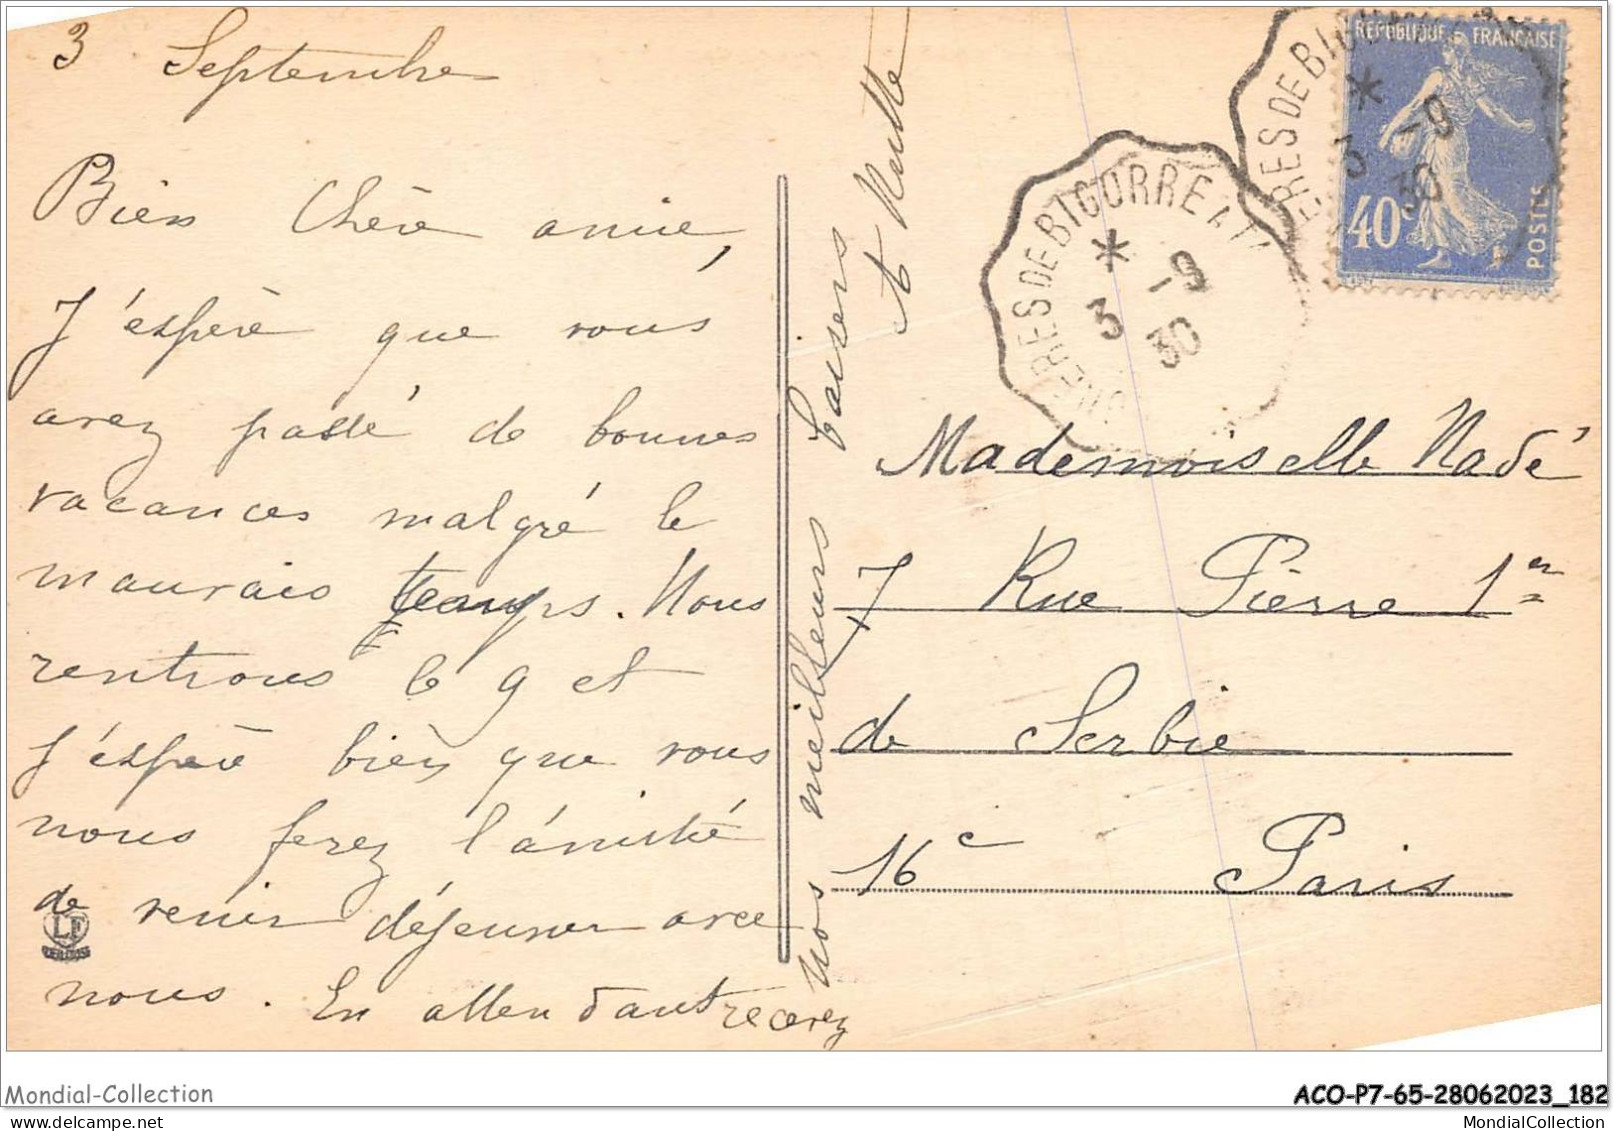 3 Septembre
Bien Chère amie,
J'éspère que vous
avez passé de bonnes
vacances malgré le
mauvais temps. Nous
rentrons le 9 et
J'éspère bien que vous
nous ferez l'ámitié
de venir déjeuner avec
nous. En attendant recevez
Nos meilleurs baisers
LF
BIGORRE A
ERES DE BIGORRE A
* 3 -9
30
ERES DE BIG
* 3 -9
30
RÉPUBLIQUE FRANÇAISE
40c
POSTES
Mademoiselle Nadé
7 Rue Pierre 1er
de Serbie
16e Paris
Mondial-Collection
ACO-P7-65-28062023_182
MondialCollection